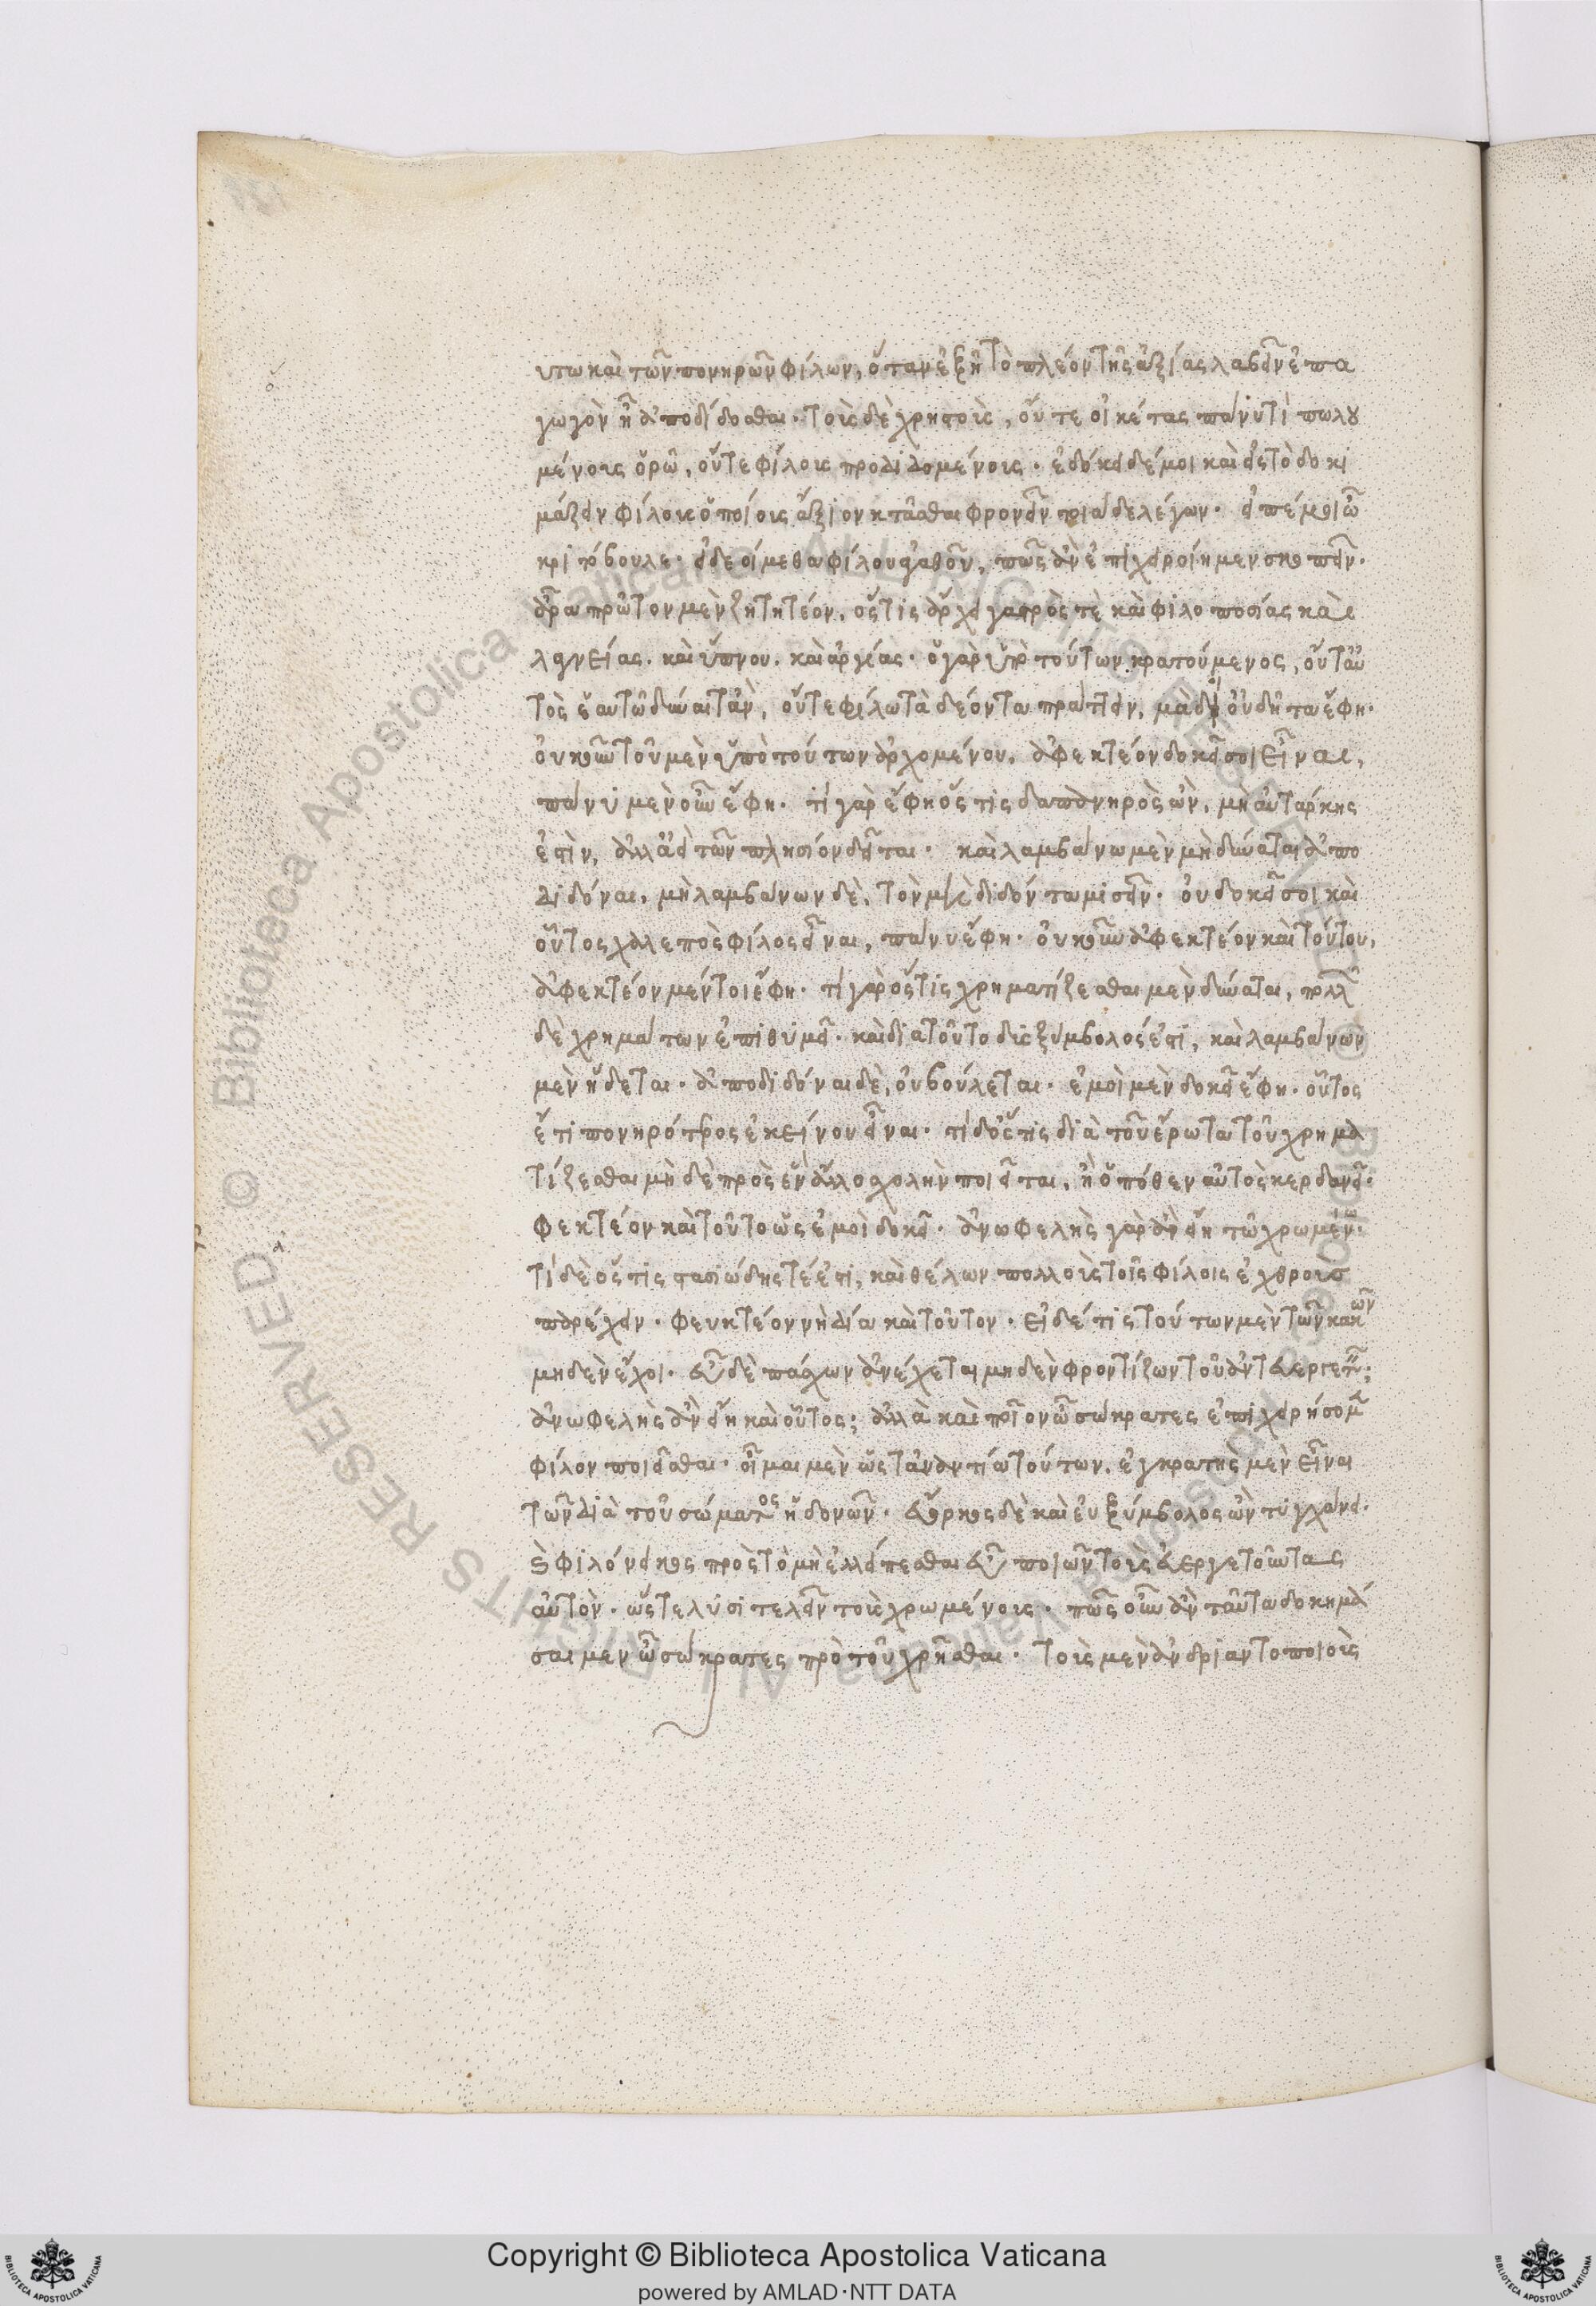 υτω καὶ τῶν πονηρῶν φίλων, ὅταν ἐξῆ τὸ πλέον τῆς ἀξίας λαβεῖν ἐπα
γωγὸν ἦ ἀποδίδοσθαι. τοῖς δὲ χρηστοῖς, οὔτε οἰκέτας πάνυ τὶ πωλου
μένοις ὁρῶ, οὔτε φίλοις προδιδομένοις. ἐδόκει δέ μοι καὶ εἰς τὸ δοκι
μάζειν φίλοις ὁποίοις ἄξιον κτᾶσθαι φρονεῖν τοιάδε λέγων. εἰπέ μοι ὦ
κριτόβουλε. εἰ δεοίμεθα φίλου ἀγαθοῦ, πῶς ἂν ἐπιχειροίημεν σκοπεῖν.
ἆρα πρῶτον μὲν ζητητέον, ὅστις ἄρχει γαστρὸς τὲ καὶ φιλοποσίας καὶ
λαγνείας. καὶ ὕπνου. καὶ ἀργίας. ὁ γὰρ ὑπὸ τούτων κρατούμενος, οὔτ' αὐ
τὸς ἑαυτῶ δύναιτ' ἂν, οὔτε φίλω τὰ δέοντα πράττειν, μὰ δί οὐ δῆτα ἔφη.
οὐκοῦν τοῦ μὲν ὑπὸ τούτων ἀρχομένου, ἀφεκτέον δοκεῖ σοι εἶναι,
πάνυ μὲν οὖν ἔφη. τί γὰρ ἔφη ὅστις δαπανηρὸς ὢν, μὴ αὐτάρκης
ἐστὶν, ἀλλ' ἀεὶ τῶν πλησίον δεῖται. καὶ λαμβάνω μὲν μὴ δύναται ἀπο
διδόναι, μὴ λαμβάνων δὲ, τὸν μὴ διδόντα μισεῖν. οὐ δοκεῖ σοι καὶ
οὗτος χαλεπὸς φίλος εἶναι, πάνυ ἔφη. οὐκοῦν ἀφεκτέον καὶ τούτου,
ἀφεκτέον μέντοι ἔφη. τί γὰρ ὅστις χρηματίζεσθαι μὲν δύναται, πολλῶν
δὲ χρημάτων ἐπιθυμεῖ. καὶ διὰ τοῦτο δυσξύμβολός ἐστι, καὶ λαμβάνων
μὲν ἥδεται. ἀποδιδόναι δὲ, οὐ βούλεται. ἐμοὶ μὲν δοκεῖ ἔφη. οὗτος
ἔτι πονηρότερος ἐκείνου εἶναι. τί δ' ὅστις διὰ τὸν ἔρωτα τοῦ χρημα
τίζεσθαι μὴ δὲ πρὸς ἓν ἄλλο σχολὴν ποιεῖται, ἢ ὁπόθεν αὐτὸς κερδανεῖ.
φεκτέον καὶ τούτου ὡς ἐμοὶ δοκεῖ. ἀνωφελὴς γὰρ ἂν εἴη τῶ χρωμένω.
τί δὲ ὅστις στασιώδης τέ ἐστι, καὶ θέλων πολλοῖς τοῖς φίλοις ἐχθροὺσ
παρέχειν. φευκτέον νὴ δία καὶ τοῦτον. εἰ δέ τις τούτων μὲν τῶν κακῶν
μηδὲν ἔχοι. εὖ δὲ πάσχων ἀνέχεται μηδὲν φροντίζων τοῦ ἀντευεργετεῖν;
ἀνωφελὴς ἂν εἴη καὶ οὗτος; ἀλλὰ καὶ ποῖον ὦ σώκρατες ἐπιχειρήσομεν
φίλον ποιεῖσθαι. οἶμαι μὲν ὃς τἀναντία τούτων. ἐγκρατὴς μὲν εἶναι
τῶν διὰ τοῦ σώματος ἡδονῶν. εὔορκος δὲ καὶ εὐξύμβολος ὢν τυγχάνει.
καὶ φιλόνεικος πρὸς τὸ μὴ ἐλλείπεσθαι εὖ ποιῶν τοὺς εὐεργετοῦντας
αὐτὸν. ὥστε λυσιτελεῖν τοῖς χρωμένοις. πῶς οὖν ἂν ταῦτα δοκημά
σαιμεν ὦ σώκρατες πρὸ τοῦ χρῆσθαι. τοὺς μὲν ἀνδριαντοποιοὺς